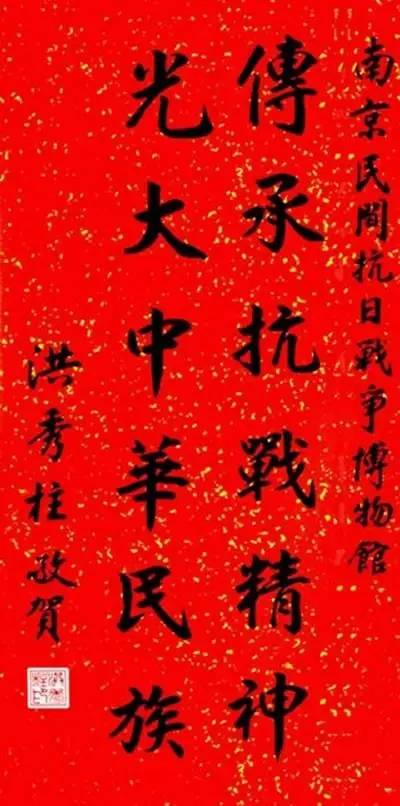 南京民間抗日戰爭博物館
傳承抗戰精神
光大中華民族
洪秀柱敬賀